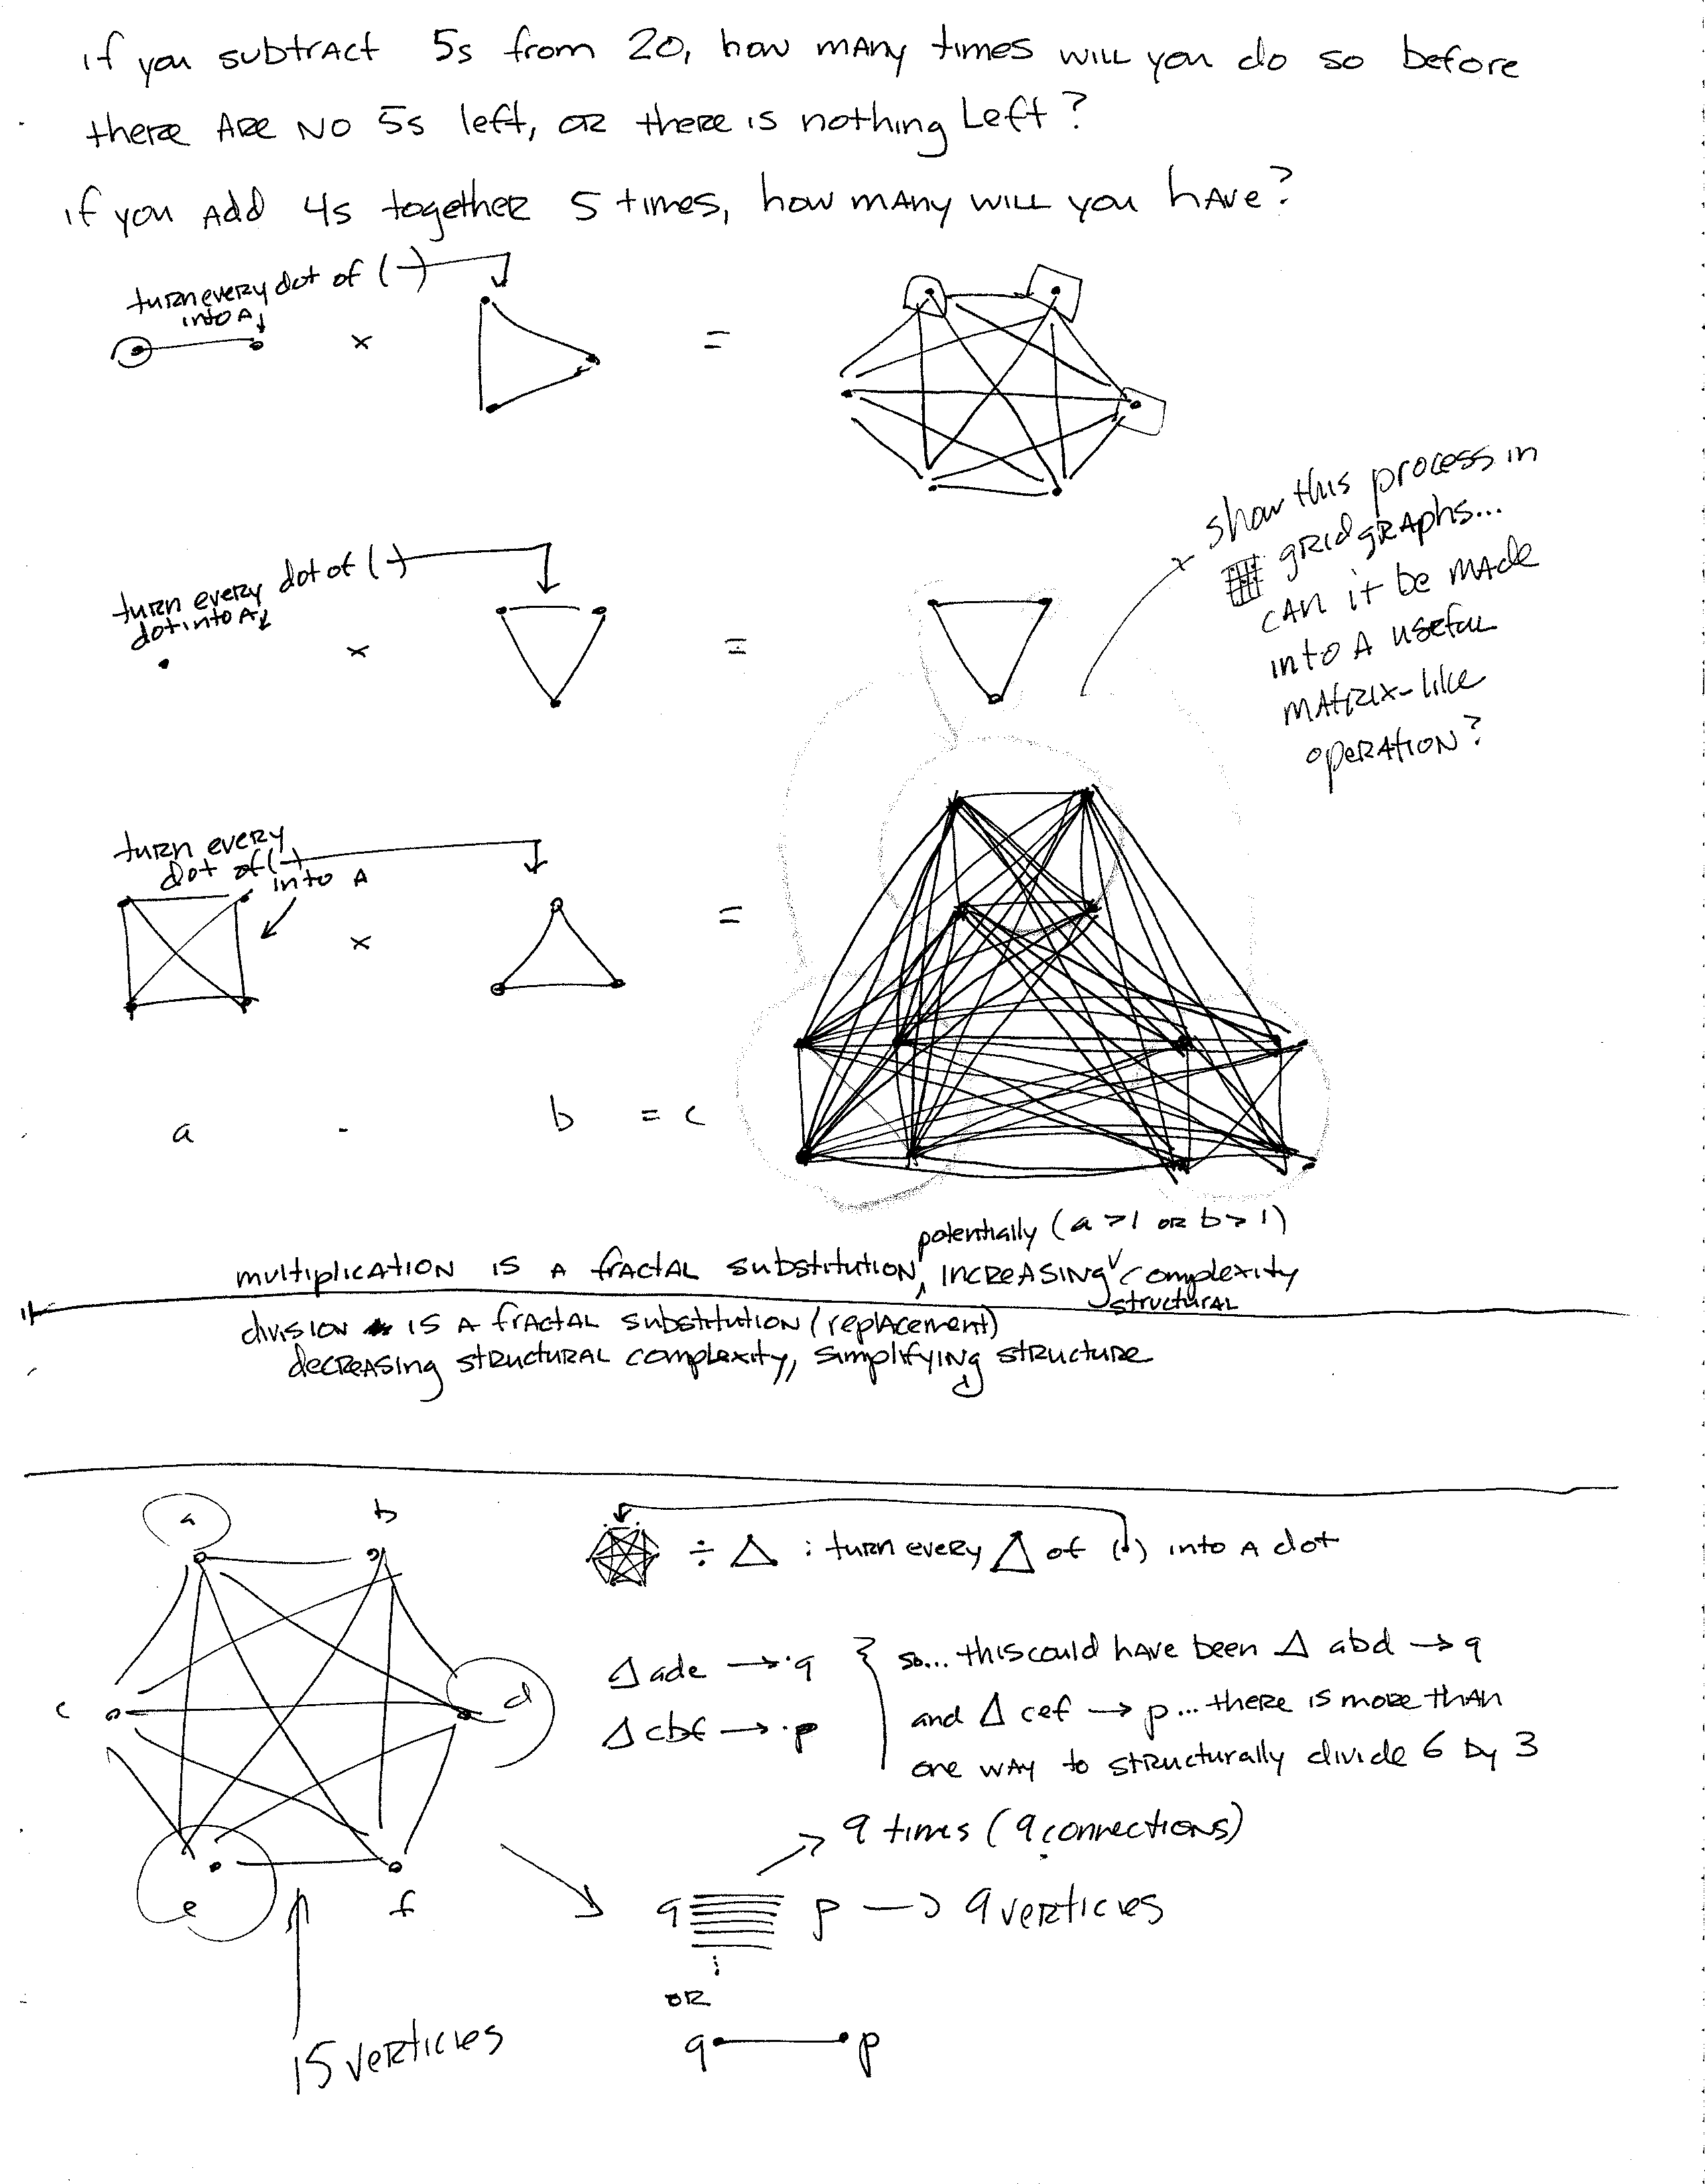 if you subtract 5s from 20, how many times will you do so before
there are no 5s left, or there is nothing left?
if you add 4s together 5 times, how many will you have?
turn every dot of ( )
into a
x
=
turn every dot of ( )
dot into a
x
=
show this process in
grid graphs...
can it be made
into a useful
matrix-like
operation?
turn every
dot of ( )
into a
x
=
a · b = c
potentially (a > 1 or b > 1)
multiplication is a fractal substitution, increasing complexity
structural
division is a fractal substitution (replacement)
decreasing structural complexity, simplifying structure
a b
÷ △ : turn every △ of ( ) into a dot
c d
△ ade → · q } so... this could have been △ abd → q
△ cbf → · p and △ cef → p ... there is more than
one way to structurally divide 6 by 3
e f
9 times (9 connections)
q p → 9 verticies
or
q p
15 verticies